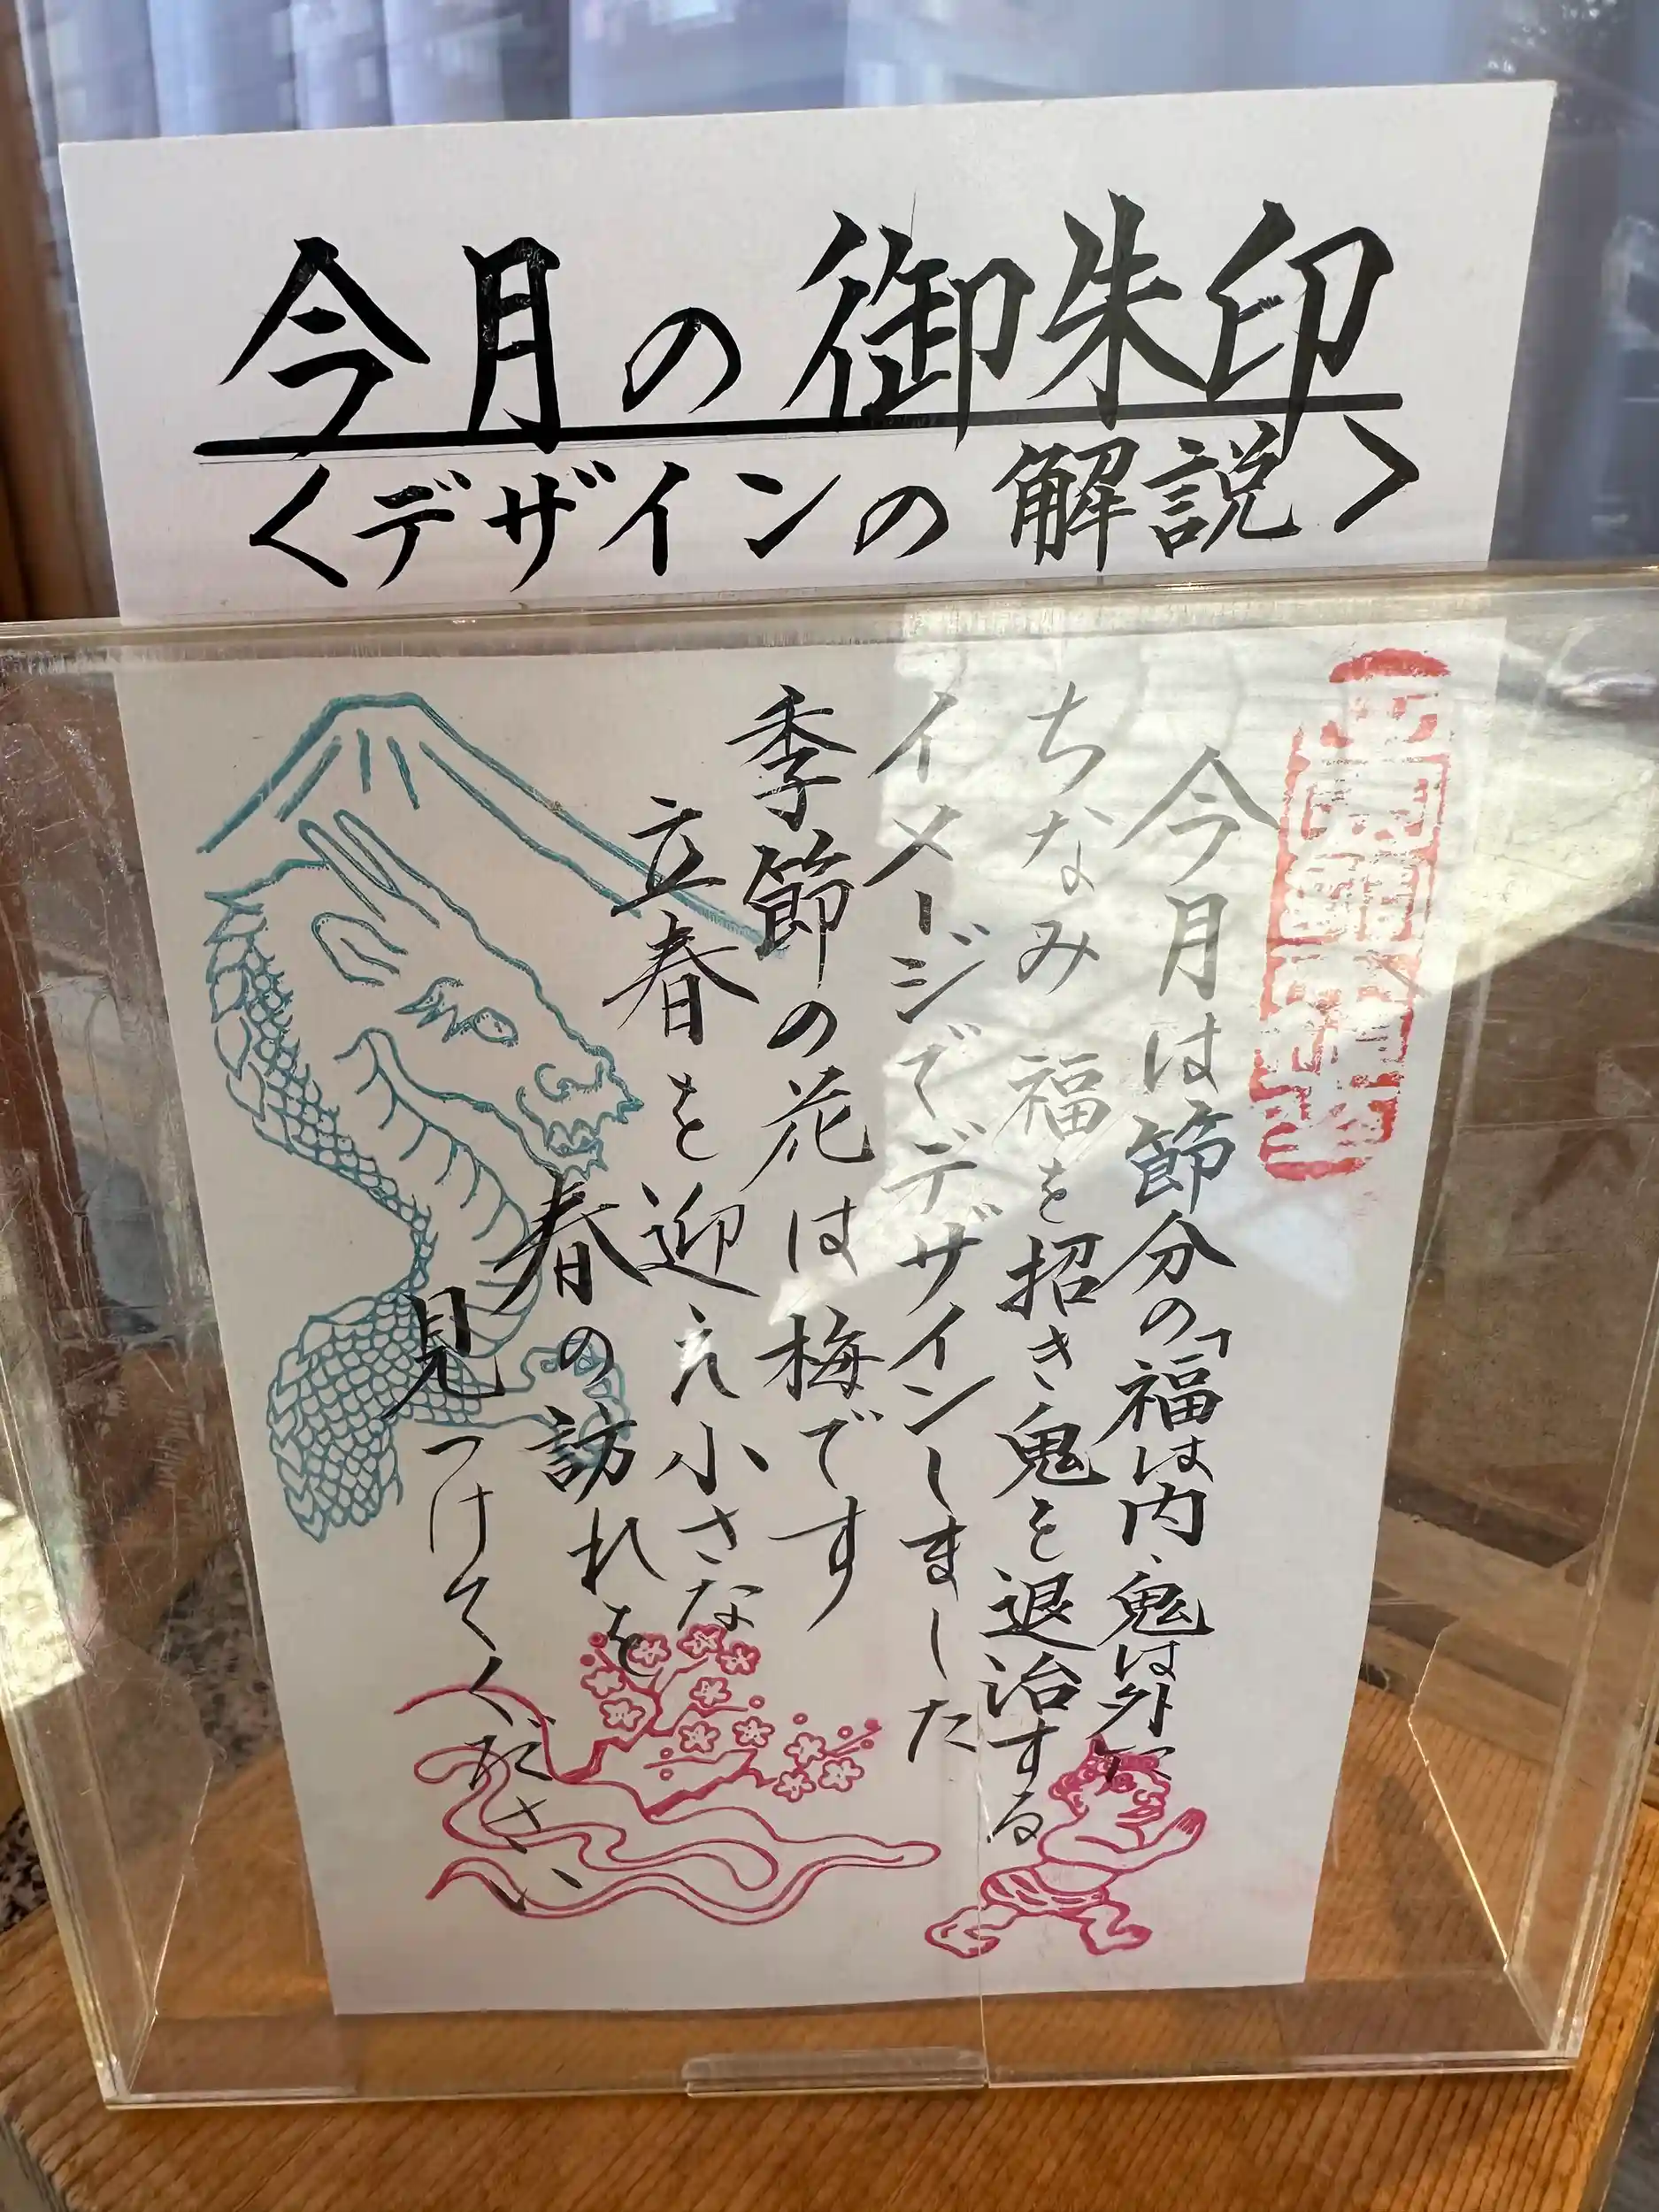 今月の御朱印
＜デザインの解説＞
今月は節分の「福は内、鬼は外」に
ちなみ 福を招き、鬼を退治する
イメージでデザインしました
季節の花は梅です
立春を迎え小さな
春の訪れを
見つけてください